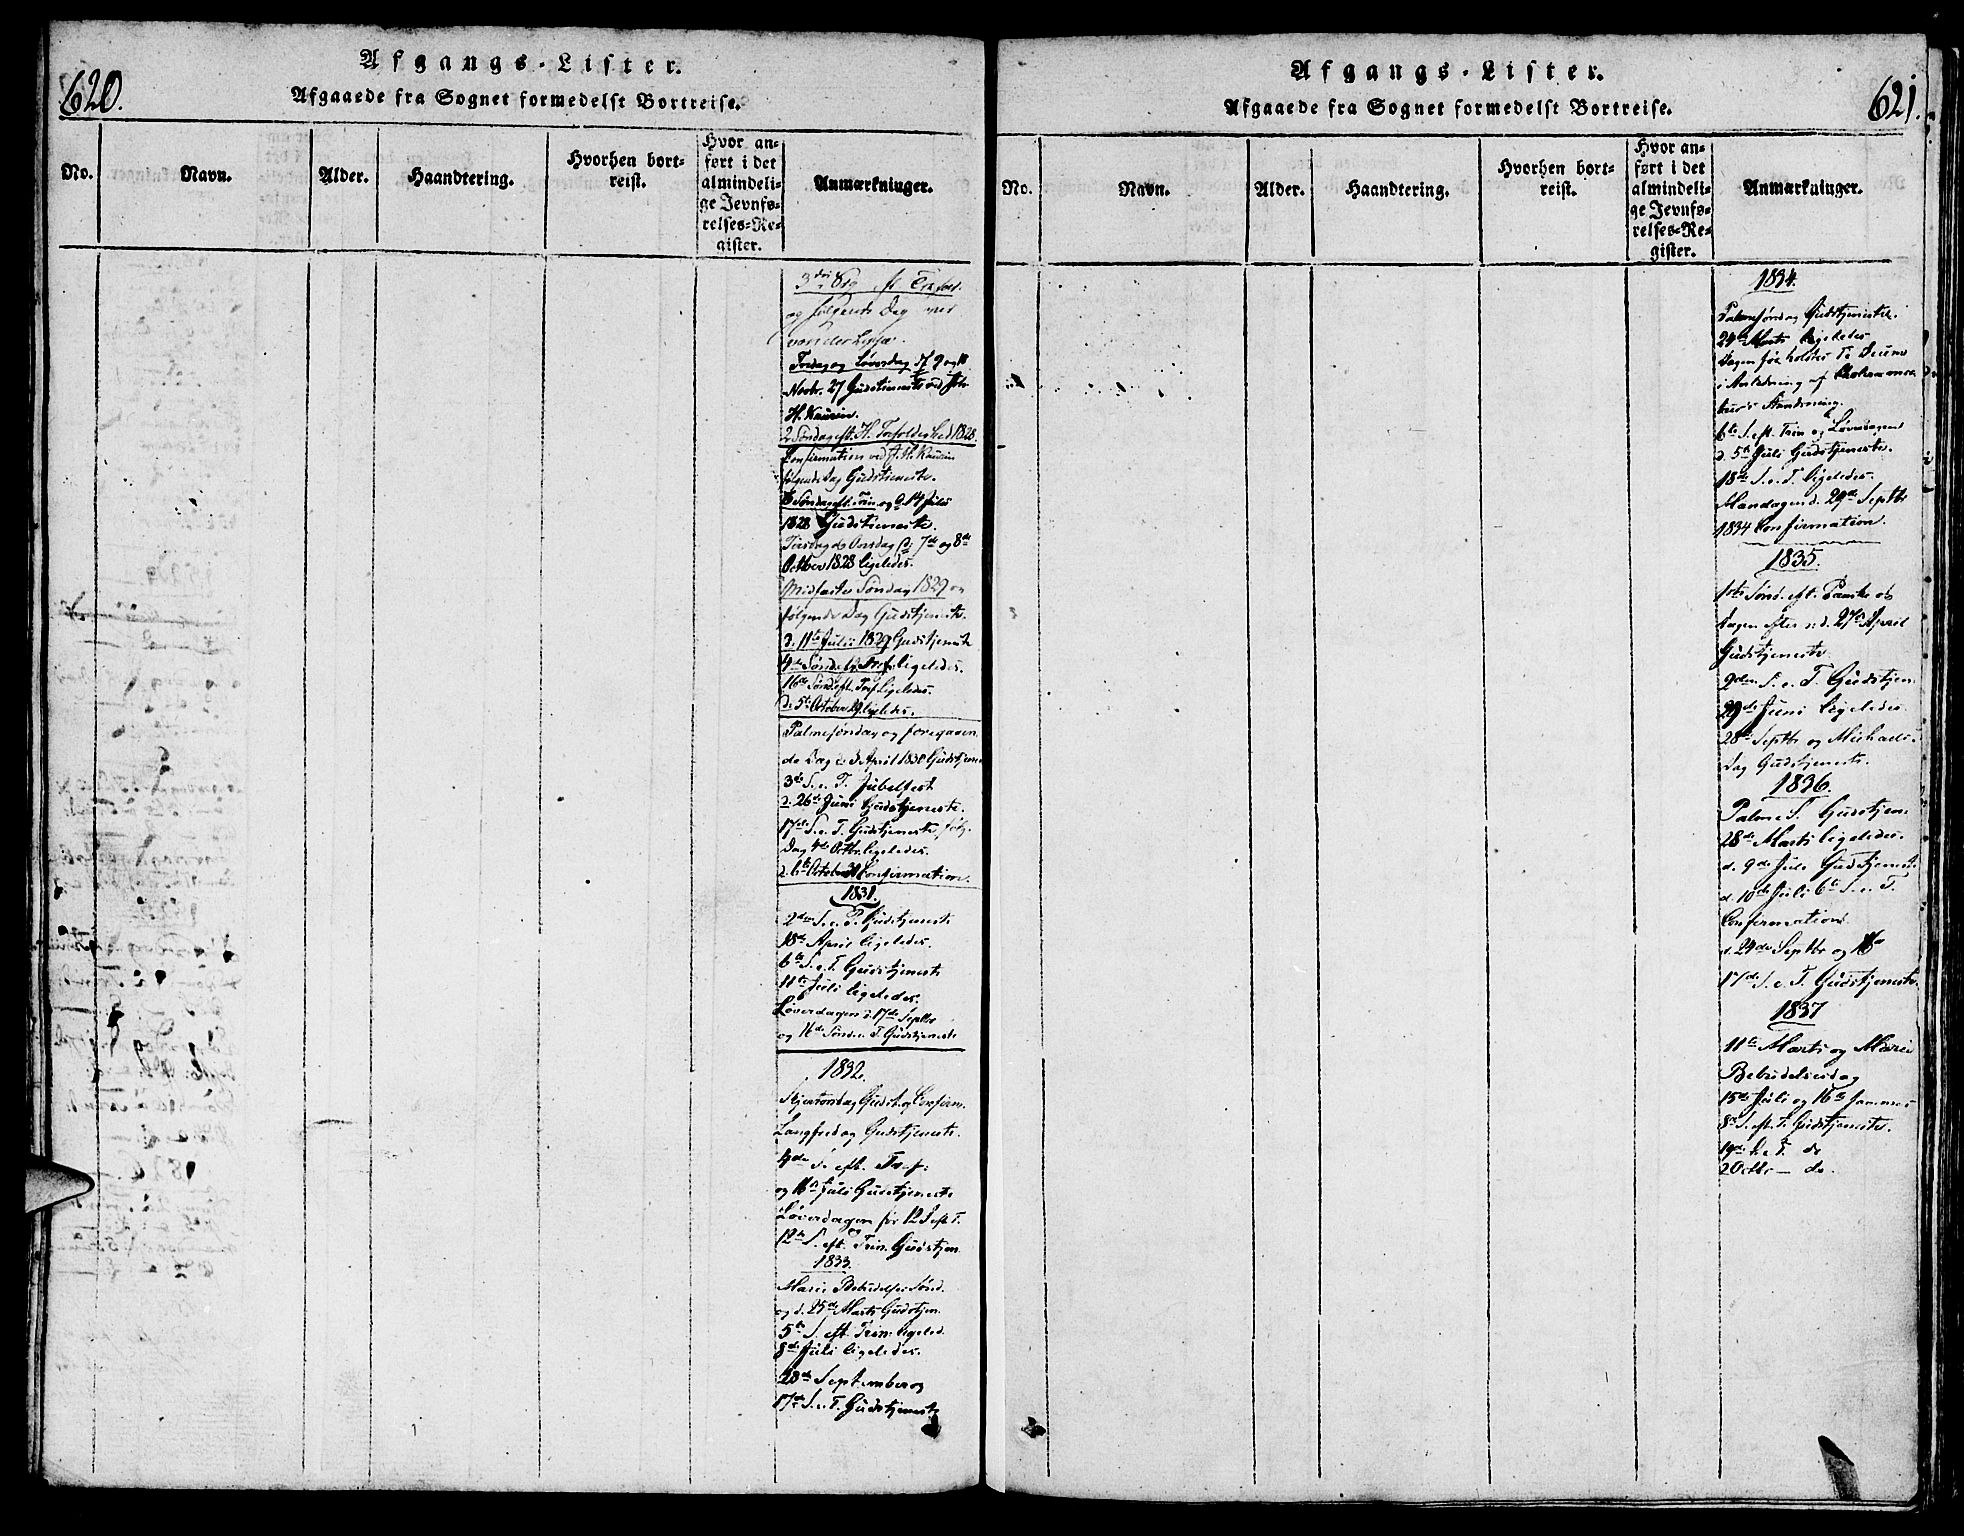 620.
Afgangs-Lister.
Afgaaede fra Sognet formedelst Bortreise.
No.
Navn.
Alder.
Haandtering.
Hvorhen bort-
reist.
Hvor an-
ført i det
almindeli-
ge Jevnfø-
relses-Re-
gister.
Anmærkninger.
og følgende Dag
Torsdag og Løverdag d. 9 og 10
Novbr. 27 Gudstieneste ved
H. Kaurin.
2 Søndag eft. H. Trefoldighed 1828
Confirmation ved H. Kaurin
følgende Dag Gudstieneste.
Søndag eft. Trin og d. 14 Juli
1828 Gudstieneste.
Tirsdag og Onsdag d. 7de og 8de
October 1828 ligeledes.
Midfaste Søndag 1829 og
følgende Dag Gudstjeneste
d. 11te Juli 1829 Gudstjeneste
4de Sønd. eft. Tref. ligeledes.
16de Sønd. eft. Tref. ligeledes.
d. 5te October 29 ligeledes.
Palmesøndag og foregaaen-
de Dag d. 3 April 1830 Gudstjene
3de S. e. T. Jubelfest
d. 26de Juni Gudstjeneste.
17de S. e. T. Gudstjeneste, følg.
Dag 4de Octbr. ligeledes.
d. 6te October Confirmation.
1831.
2den S. e. P. Gudstjeneste
18de April ligeledes.
6te S. e. T. Gudstjeneste
11te Juli ligeledes.
Løverdagen d. 17de Septbr
og 16de Sønd. e. T. Gudstjeneste
1832.
Skjærtorsdag Gudst. og Confirm.
Langfredag Gudstjeneste.
4de S. eft. Tref.
og 16de Juli Gudstjeneste
Løverdagen før 12 S. eft. T.
og
12te S. eft. Trin. Gudstjen.
1833.
Marie Bebudelses Sønd.
og d. 25de Marts Gudstjen.
5te S. eft. Trin. ligeled.
8de Juli ligeledes.
28de September og
17de S. e. T. Gudstjeneste
621.
Afgangs-Lister.
Afgaaede fra Sognet formedelst Bortreise.
No.
Navn.
Alder.
Haandtering.
Hvorhen bort-
reist.
Hvor an-
ført i det
almindeli-
ge Jevnfø-
relses-Re-
gister.
Anmærkninger.
1834.
Palmesøndag Gudstjeneste.
24de Marts ligeledes
Dagen før holdtes Te Deum
i Anledning af
Standsning.
6te S. eft. Trin og Løverdagen
d. 5te Juli Gudstjeneste.
18de S. e. T. ligeledes.
Mandagen d. 29de Septbr
1834 Confirmation.
1835.
1ste Sønd. eft. Paaske og
Dagen efter d. 27de April
Gudstjeneste
2den S. e. T. Gudstjen.
29de Juni ligeledes.
28de Septbr og Michaels-
Dag Gudstjeneste.
1836.
Palme S. Gudstjen.
28de Marts ligeledes.
d. 9de Juli Gudstjenest.
d. 10de Juli 6te S. e. T.
Confirmation
d. 24de Septbr og
17de S. e. T. Gudstjeneste.
1837
11te Marts og Marie
Bebudelsesdag
15de Juli og 16te sammes
8de S. eft. T. Gudstjeneste.
19de S. e. T. do
2 Octbr — do.